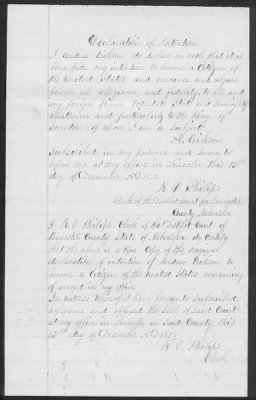 Declaration of Intention
I Andrew Erikson do declare on oath that it is
bona fide my intention to become a Citizen of
the United States and renounce and abjure
forever all allegiance and fidelity to all and
any foreign Prince, Potentate State and Sovereignty
Whatever and particularly to the King of
Sweeden of whom I am a subject.
A. Erikson
Subscribed in my presence and Sworn to
before me at my office in Lincoln this 13th
day of December A.D. 1872
R. O. Philips
Clerk of the District Court for Lancaster
County, Nebraska
I R. O. Philips Clerk of the District Court of
Lancaster County State of Nebraska do Certify
that the above is a true Copy of the original
declaration of intention of Andrew Erikson to
become a Citizen of the United States remaining
of record in my office.
In witness Whereof I have hereunto subscribed
my name and affixed the Seal of Said Court
at my office in Lincoln in Said County this
13th day of December A.D. 1872
R. O. Philips
Clerk